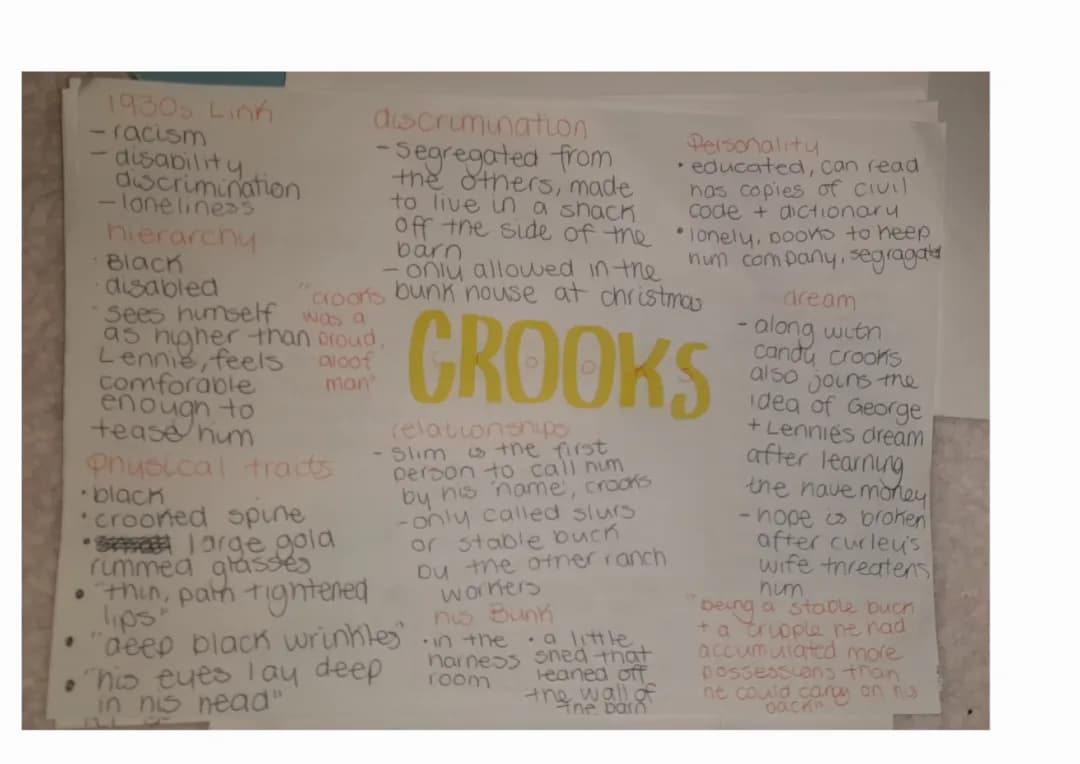 1930s Link
- racism
- disability
discrimination
- loneliness
hierarchy
· Black
· disabled
· sees himself
as higher than
Lennie, feels
comforable
enough to
tease him
"crooks
was a
proud,
aloof
man"
physical traits
• black
• crooked spine
• large gold
rimmed glasses
• "thin, pain tightened
lips"
• "deep black wrinkles"
• "his eyes lay deep
in his head"
discrimination
- segregated from
the others, made
to live in a shack
off the side of the
barn
- only allowed in the
bunk house at christmas
CROOKS
relationships
- slim is the first
person to call him
by his 'name', crooks
- only called slurs
or stable buck
by the other ranch
workers
his Bunk
· in the
harness
room
· a little
shed that
leaned off
the wall of
the barn
Personality
• educated, can read
has copies of civil
code + dictionary
• lonely, books to keep
him company, segragated
dream
- along with
candy crooks
also joins the
idea of George
+ Lennie's dream
after learning
the have money
- hope is broken
after curley's
wife threatens
him
"being a stable buck
+ a cripple he had
accumulated more
possessions than
he could carry on his
back"